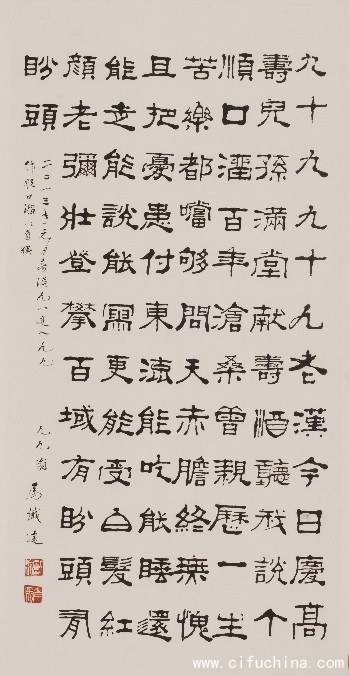 九十九九十九老漢今日慶高
壽兒孫滿堂献壽酒聽我說个
順口溜百年滄桑曾親歷一生
苦樂都嚐够問天赤膽終無愧
且把憂患付東流能吃能睡還
能走能說能寫更能變白髮紅
顏老彌壯登攀百域有盼頭有
盼頭
二〇一三年元月喜渡九八進入九九
作順口溜以自
九九翁 馬識途
www.cifuchina.com